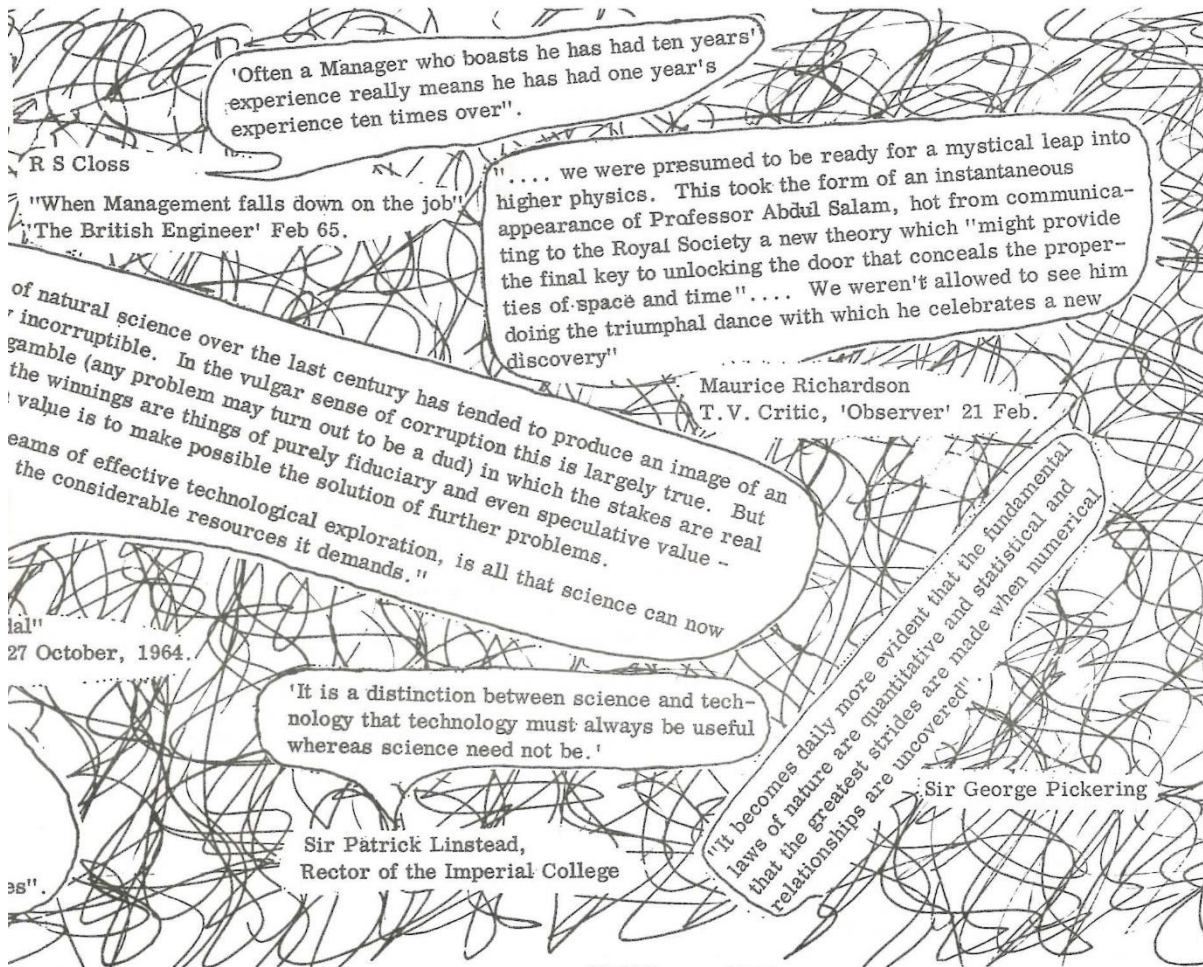 'Often a Manager who boasts he has had ten years'
experience really means he has had one year's
experience ten times over".
R S Closs
"When Management falls down on the job"
'The British Engineer' Feb 65.
".... we were presumed to be ready for a mystical leap into
higher physics. This took the form of an instantaneous
appearance of Professor Abdul Salam, hot from communica-
ting to the Royal Society a new theory which "might provide
the final key to unlocking the door that conceals the proper-
ties of space and time".... We weren't allowed to see him
doing the triumphal dance with which he celebrates a new
discovery"
Maurice Richardson
T.V. Critic, 'Observer' 21 Feb.
of natural science over the last century has tended to produce an image of an
incorruptible. In the vulgar sense of corruption this is largely true. But
gamble (any problem may turn out to be a dud) in which the stakes are real
the winnings are things of purely fiduciary and even speculative value -
value is to make possible the solution of further problems.
eams of effective technological exploration, is all that science can now
the considerable resources it demands."
ial"
27 October, 1964.
'It is a distinction between science and tech-
nology that technology must always be useful
whereas science need not be.'
Sir Patrick Linstead,
Rector of the Imperial College
"It becomes daily more evident that the fundamental
laws of nature are quantitative and statistical and
that the greatest strides are made when numerical
relationships are uncovered".
Sir George Pickering
es".